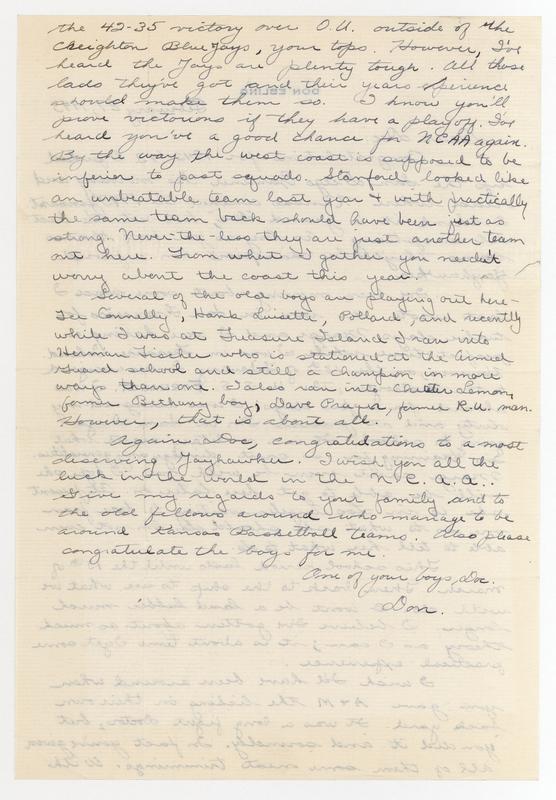 the 42-35 victory over O.U. outside of the
Creighton Blue Jays, your tops. However, I've
heard the Jays are plenty tough. All those
lads they've got and their years xperience
should make them so. I know you'll
prove victorious if they have a playoff. I've
heard you've a good chance for NCAA again.
By the way the west coast is supposed to be
inferior to past squads. Stanford looked like
an unbeatable team last year + with practically
the same team back should have been just as
strong. Never-the-less they are just another team
out here. From what I gather you needn't
worry about the coast this year.
Several of the old boys are playing out here-
Connelly, Hank Luisette, Pollard, and recently
while I was at Treasure Island I ran into
Herman Fischer who is stationed at the Armed
Guard school and still a champion in more
ways than one. I also ran into Chester Lemon,
former Bethany boy, Dave former K.U. man.
However, that is about all.
Again Doc, congratulations to a most
deserving Jayhawker. I wish you all the
luck in the world in the N.C.A.A..
Give my regards to your family and to
the old fellows around who manage to be
around Kansas Basketball teams. Also please
congratulate the boys for me.
One of your boys, Doc.
Don.